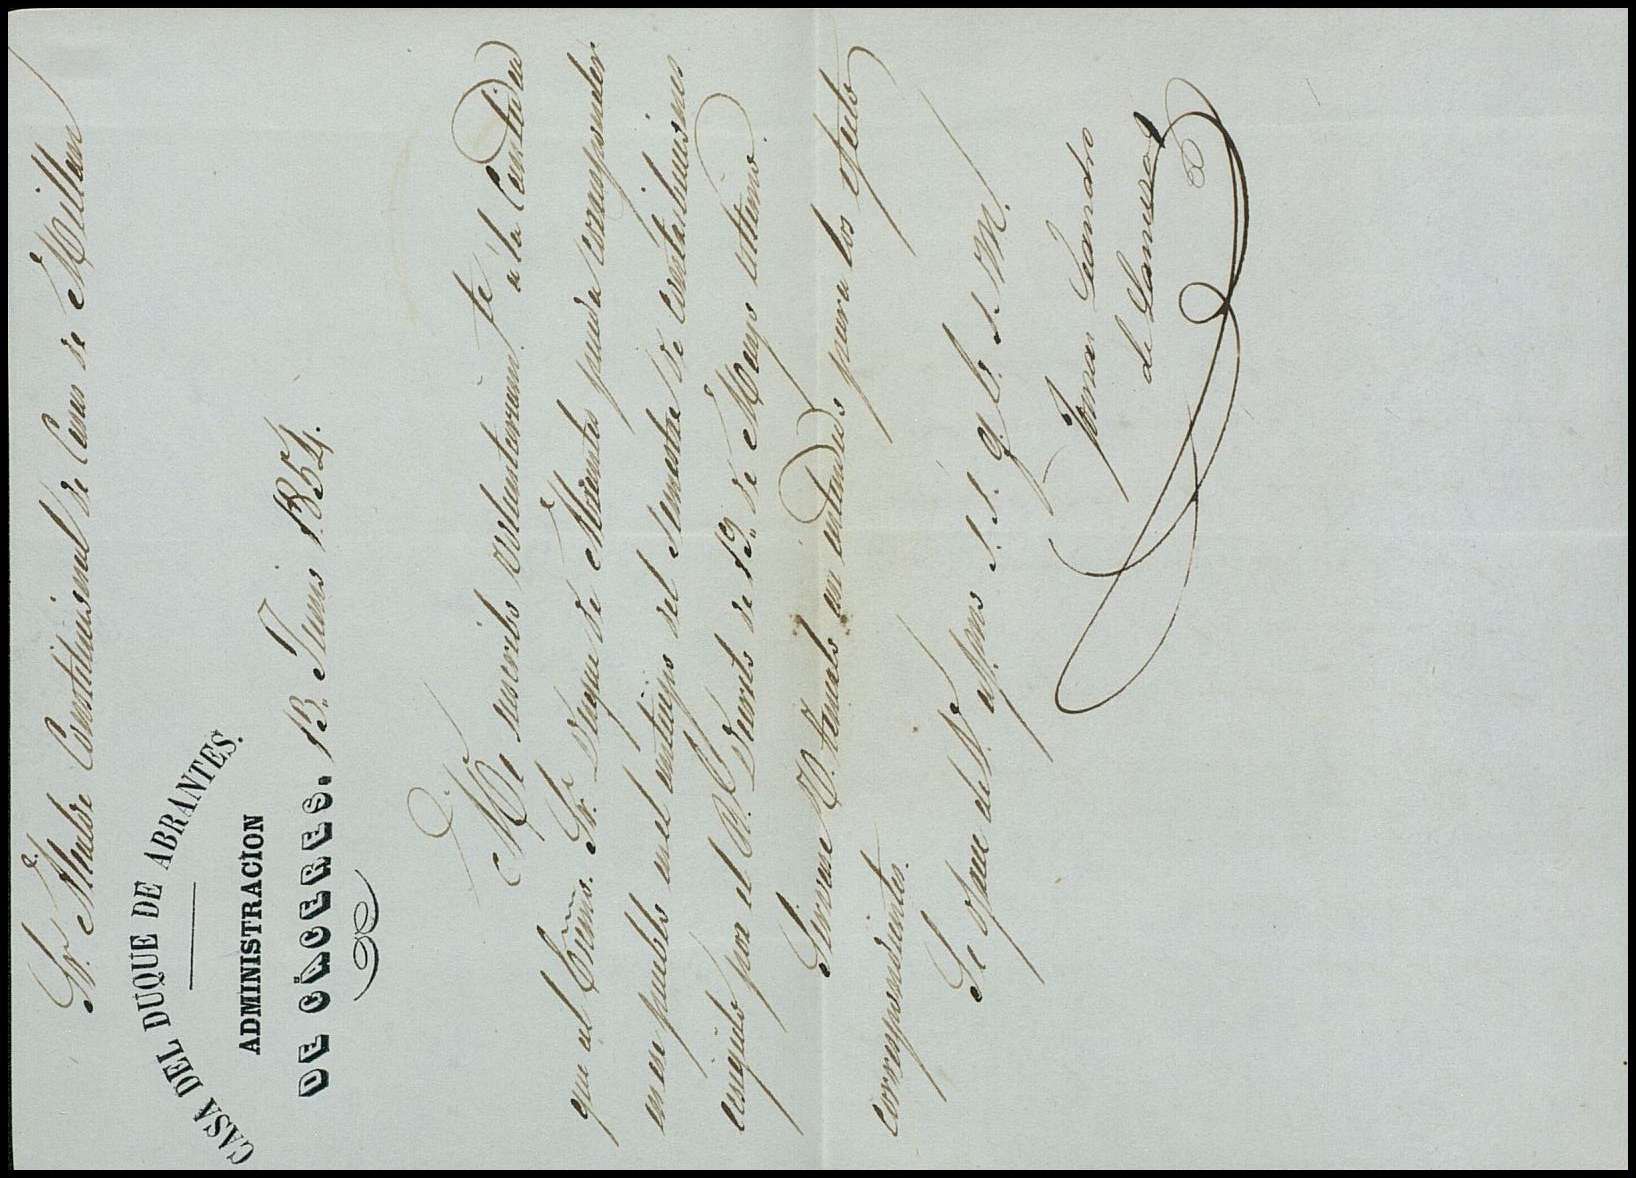 Sr. Alcalde Constitucional de Casas de Millan
CASA DEL DUQUE DE ABRANTES.
ADMINISTRACION
DE CÁCERES.
13,, Junio 1854.
Me suscribo voluntariam.te á la Cantidad
que al Excmo. Sr. Duque de Abrantes pueda corresponder
en ese pueblo en el anticipo del Semestre de Contribuciones
exigido por el R. Decreto de 19,, de Mayo ultimo.
Sirvase V. tenerlo así entendido para los efectos
correspondientes.
Se ofrece de V. affmo S. S. q. b. s. M.
Leandro
de